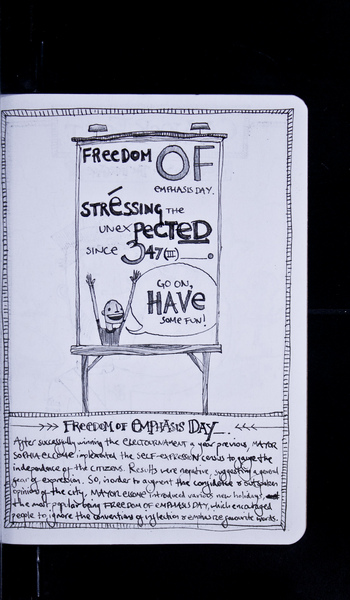 FREEDOM OF
EMPHASIS DAY.
STRÉSSING THE
UNEXPECTED
SINCE 347(III)____.
GO ON,
HAVE
SOME FUN!
>>> FREEDOM OF EMPHASIS DAY. <<<
After successfully winning the ELECTOURNAMENT a year previous, MAYOR
SOPHIA ELCOME implemented the SELF-EXPRESSION census to gauge the
independence of the citizens. Results were negative, suggesting a general
fear of expression. So, in order to augment the confidence & outspoken
opinions of the city, MAYOR ELCOME introduced various new holidays,
the most popular being FREEDOM OF EMPHASIS DAY, which encouraged
people to ignore the conventions of inflection & emphasize favourite words.